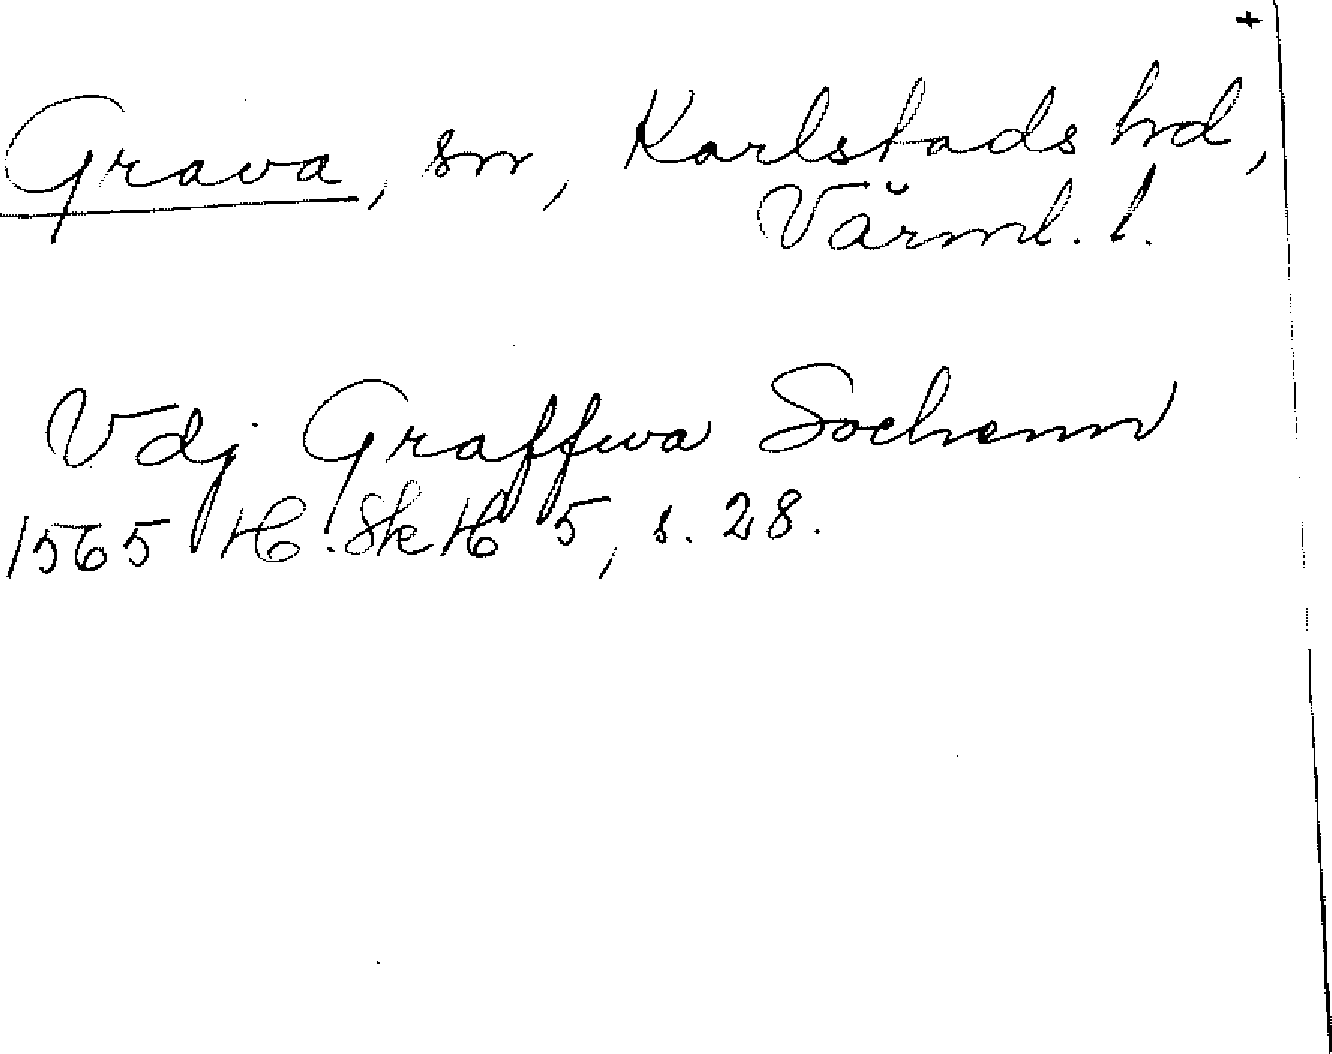 +
Grava, sn, Karlstads hrd,
Värml. l.
Vdj Graffwa Sochenn
1565 H. Sk H 5, s. 28.